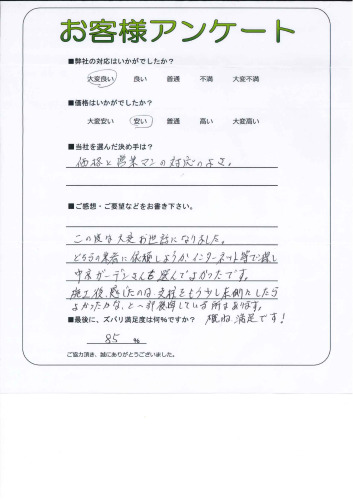 お客様アンケート
■弊社の対応はいかがでしたか？
大変良い 良い 普通 不満 大変不満
■価格はいかがでしたか？
大変安い 安い 普通 高い 大変高い
■当社を選んだ決め手は？
価格と営業マンの対応のよさ。
■ご感想・ご要望などをお書き下さい。
この度は大変お世話になりました。
どちらの業者に依頼しようかインターネット等で探し
中京ガーデンさんを選んでよかったです。
施工後、感じたのは支柱をもう少し東側にしたら
よかったかな、と 所もあります。
■最後に、ズバリ満足度は何％ですか？ 概ね満足です！
85 %
ご協力頂き、誠にありがとうございました。